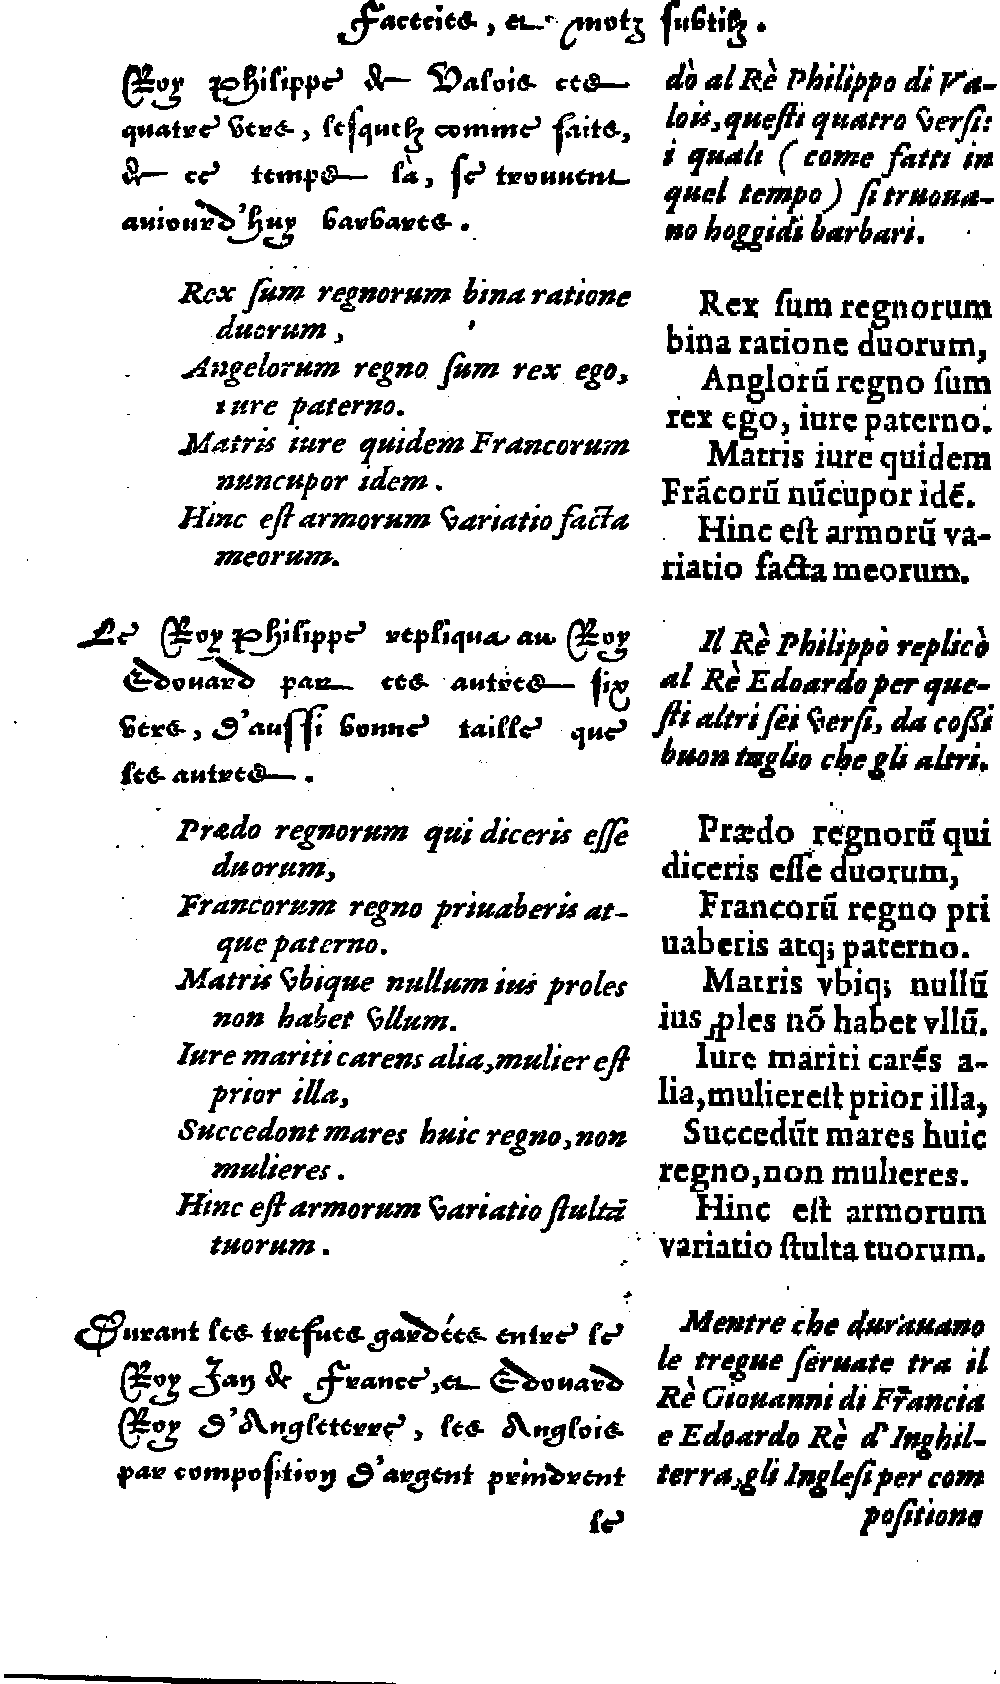 Faceties, et motz subtilz.
Roy Philippe de Valois ces
quatre vers, lesquelz comme faits,
de ce temps là, se trouuent
auiourd'huy barbares.
Rex ſum regnorum bina ratione
duorum,
Angelorum regno ſum rex ego,
iure paterno.
Matris iure quidem Francorum
nuncupor idem.
Hinc eſt armorum variatio facta
meorum.
Le Roy Philippe repliqua au Roy
Edouard par ces autres six
vers, d'aussi bonne taille que
les autres.
Prædo regnorum qui diceris eſſe
duorum,
Francorum regno priuaberis at-
que paterno.
Matris vbique nullum ius proles
non habet vllum.
Iure mariti carens alia, mulier eſt
prior illa,
Succedont mares huic regno, non
mulieres.
Hinc eſt armorum variatio ſtultā
tuorum.
Durant les trefues gardées entre le
Roy Jan de France, et Edouard
Roy d'Angleterre, les Anglois
par composition d'argent prindrent
le
dò al Rè Philippo di Va-
lois, queſti quatro verſi:
i quali ( come fatti in
quel tempo ) ſi truoua-
no hoggidì barbari.
Rex ſum regnorum
bina ratione duorum,
Anglorū regno ſum
rex ego, iure paterno.
Matris iure quidem
Frācorū nūcupor idē.
Hinc eſt armorū va-
riatio facta meorum.
Il Rè Philippò replicò
al Rè Edoardo per que-
ſti altri ſei verſi, da coſſi
buon taglio che gli altri.
Prædo regnorū qui
diceris eſſe duorum,
Francorū regno pri
uaberis atq; paterno.
Matris vbiq; nullū
ius ꝓles nō habet vllū.
Iure mariti carēs a-
lia, mulier eſt prior illa,
Succedūt mares huic
regno, non mulieres.
Hinc eſt armorum
variatio ſtulta tuorum.
Mentre che durauano
le tregue ſeruate tra il
Rè Giouanni di Francia
e Edoardo Rè d'Inghil-
terra, gli Ingleſi per com
poſitione